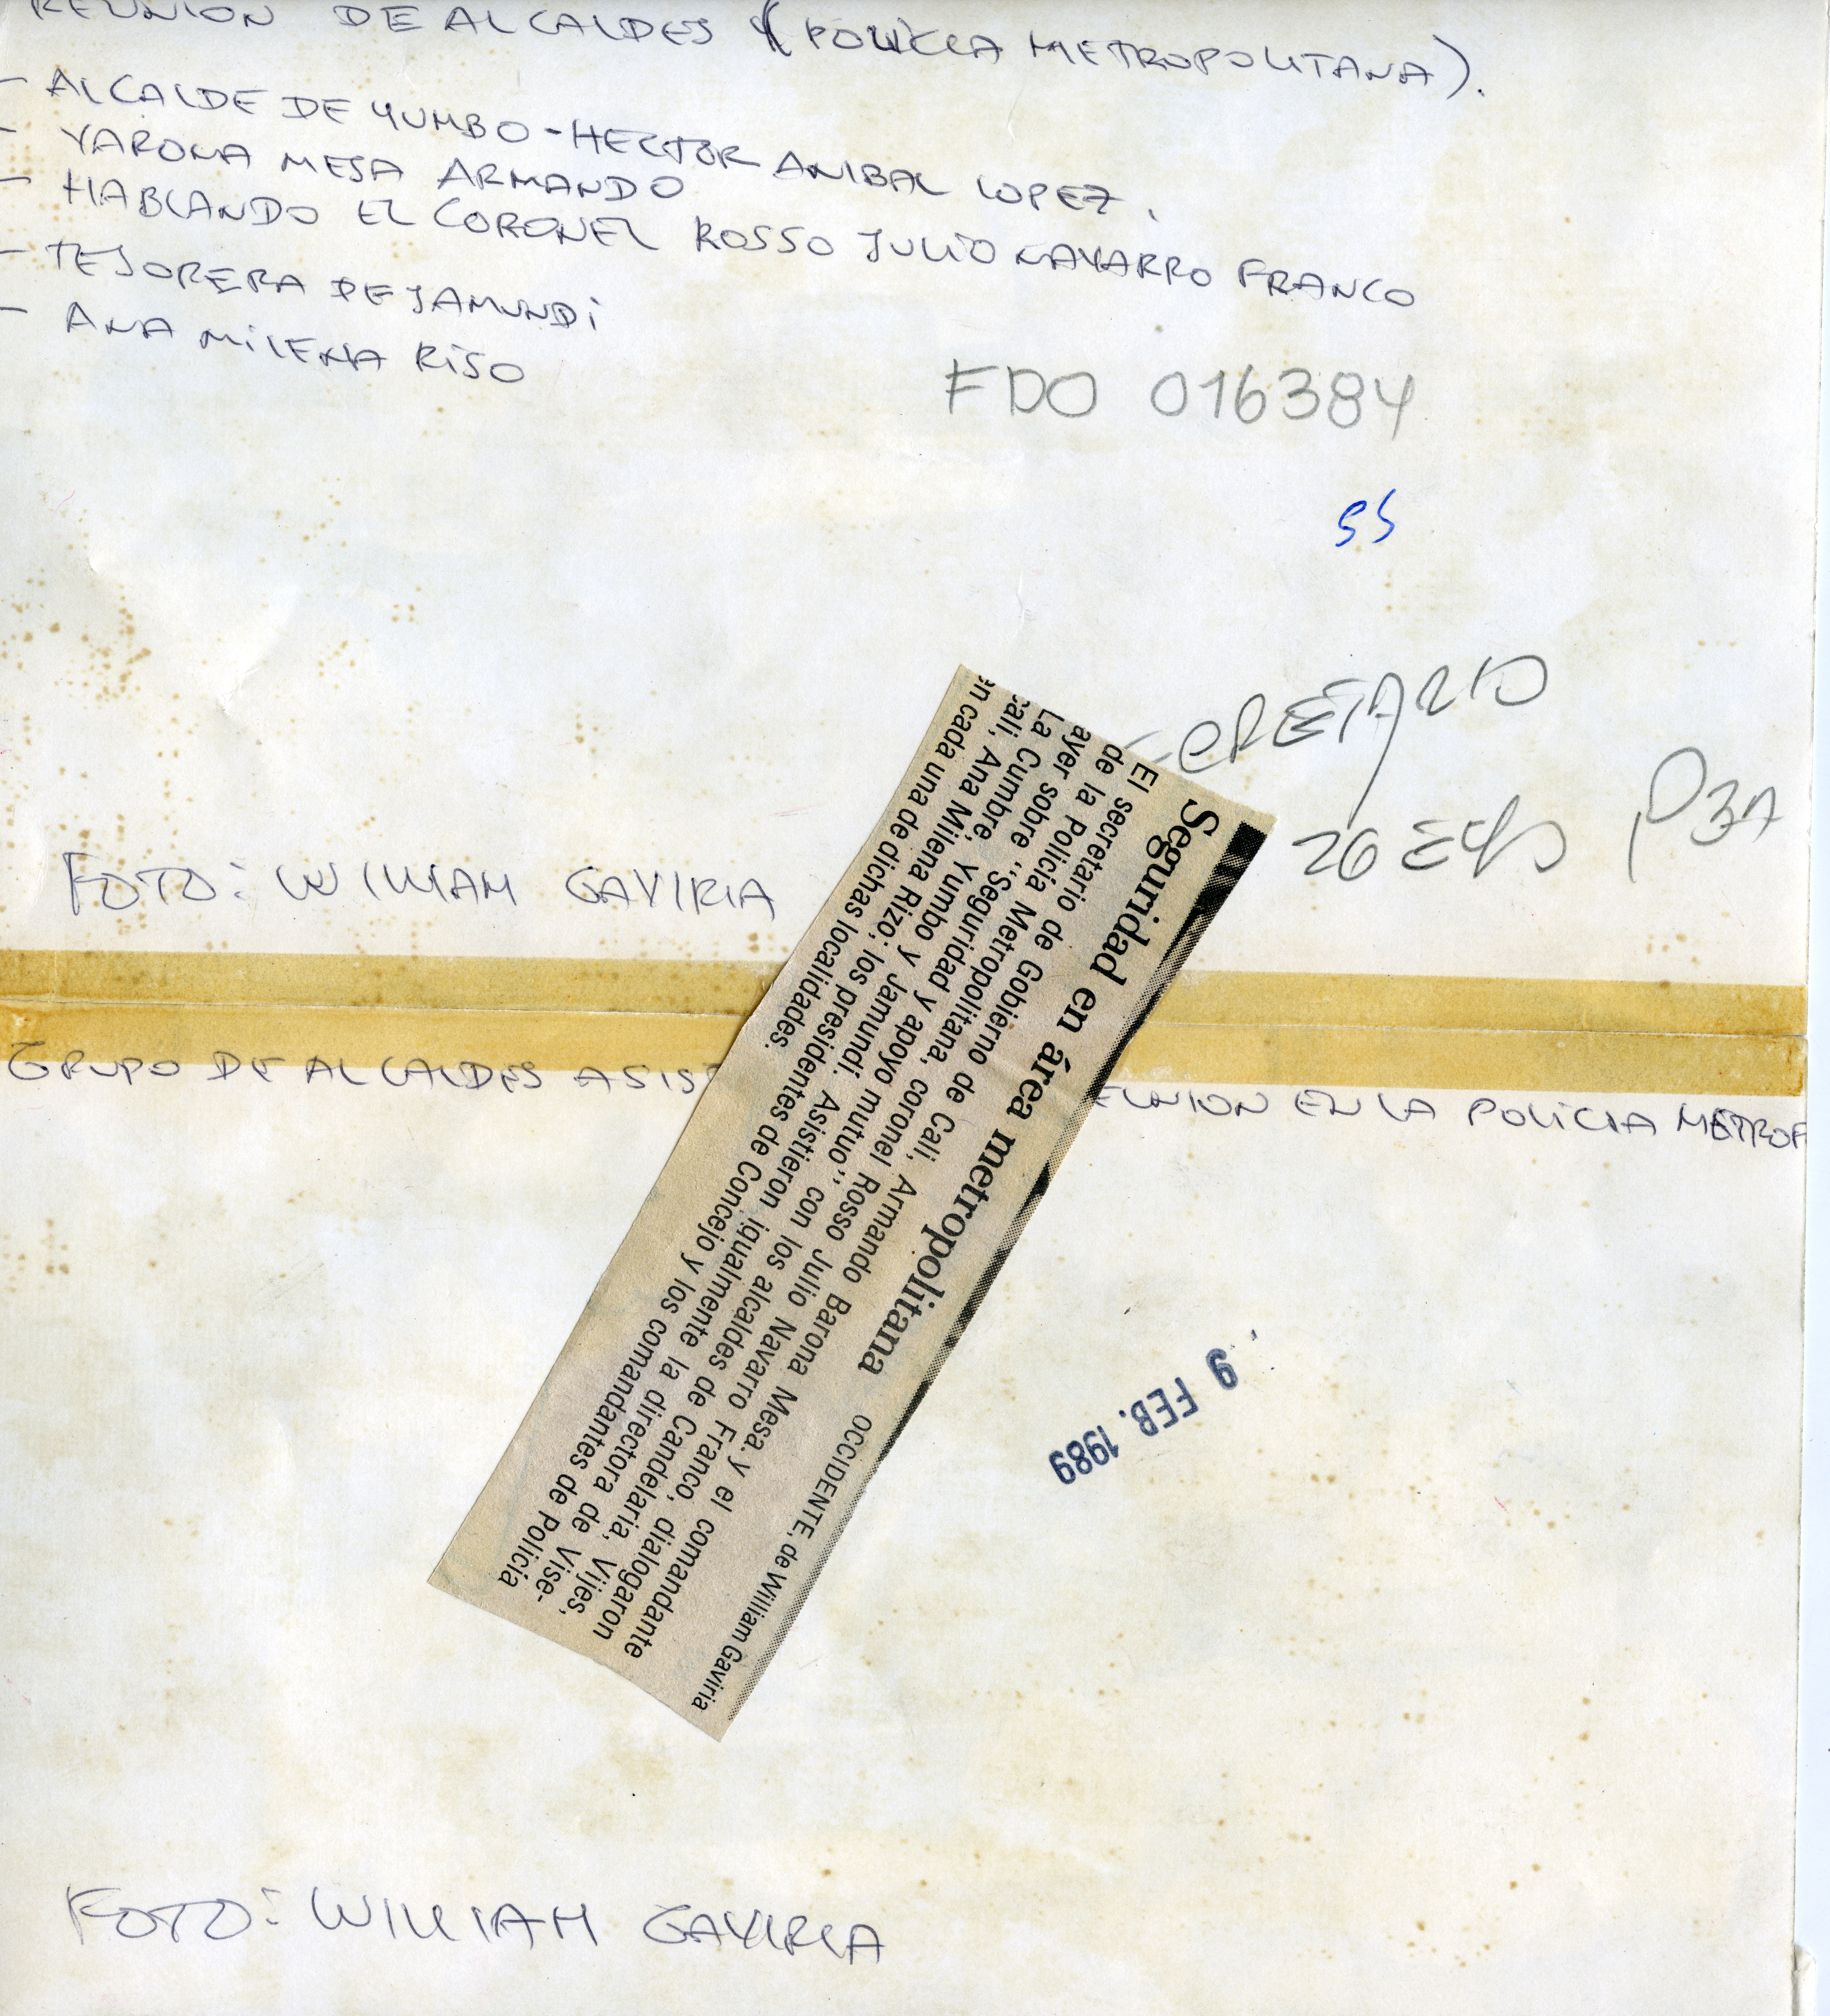 REUNION DE ALCALDES (POLICIA METROPOLITANA).
- ALCALDE DE YUMBO - HECTOR ANIBAL LOPEZ.
- VARONA MESA ARMANDO
- HABLANDO EL CORONEL ROSSO JULIO NAVARRO FRANCO
- TESORERA DE JAMUNDI
- ANA MILENA RISO
FDO 016384
55
CRETARIO
26
P3A
FOTO: WILLIAM GAVIRIA
Seguridad en área metropolitana
OCCIDENTE, de William Gaviria
El secretario de Gobierno de Cali, Armando Barona Mesa. y el comandante
de la Policía Metropolitana, coronel Rosso Julio Navarro Franco, dialogaron
ayer sobre "Seguridad y apoyo mutuo" con los alcaldes de Candelaria, Vijes,
La Cumbre, Yumbo y Jamundí. Asistieron igualmente la directora de Vise-
cali, Ana Milena Rizo; los presidentes de Concejo y los comandantes de Policía
en cada una de dichas localidades.
GRUPO DE ALCALDES ASIST EUNION EN LA POLICIA METROP
9 FEB. 1989
FOTO: WILLIAM GAVIRIA